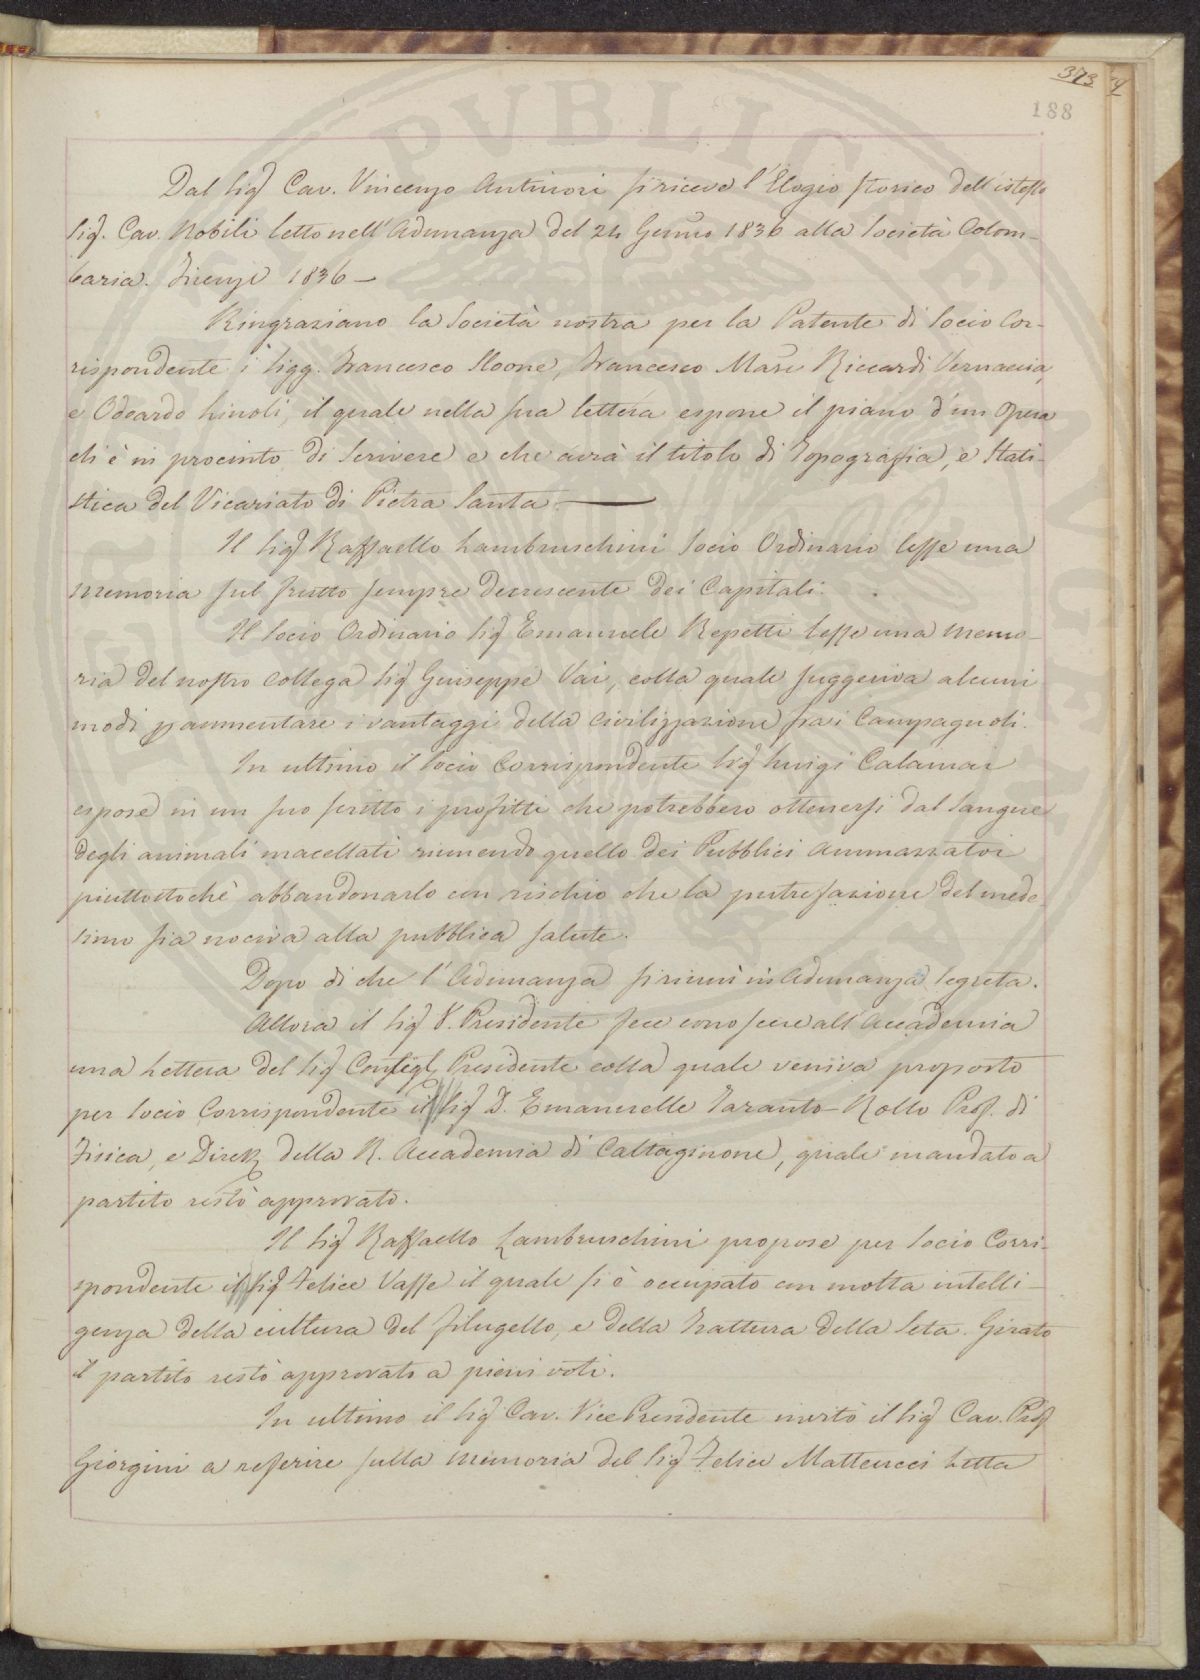 373
188
Dal Sigr Cav. Vincenzo Antinori si riceve l'Elogio storico dell'istesso
Sigr. Cav. Nobili letto nell'Adunanza del 24 Genno 1836 alla Società Colom-
baria. Firenze 1836 —
Ringraziano la Società nostra per la Patente di Socio Cor-
rispondente i Sigg. Francesco Sloane, Francesco Mari Riccardi Vernaccia,
e Odoardo Linoli, il quale nella sua lettera espone il piano d'un Opera
ch'è in procinto di Scrivere e che avrà il titolo di Topografia, e Stati-
stica del Vicariato di Pietra Santa. —
Il Sigr Raffaello Lambruschini Socio Ordinario lesse una
memoria sul frutto sempre decrescente dei Capitali.
Il Socio Ordinario Sigr Emanuele Repetti lesse una memo-
ria del nostro collega Sigr Guiseppe Vai, colla quale suggeriva alcuni
modi p aumentare i vantaggi della civilizzazione fra i Campagnoli.
In ultimo il Socio Corrispondente Sigr Luigi Calamai
espose in un suo scritto i profitti che potrebbero ottenersi dal Sangue
degli animali macellati riunendo quello dei Pubblici Ammazzatoi
piuttostochè abbandonarlo con rischio che la putrefazione del mede
simo sia nociva alla pubblica salute.
Dopo di che l'Adunanza si riunì in Adunanza Segreta.
Allora il Sigr V. Presidente fece conoscere all'Accademia
una Lettera del Sigr Consigl. Presidente colla quale veniva proposto
per Socio Corrispondente il Sigr D. Emanuelle Taranto-Rollo Prof. di
Fisica, e Direttr della R. Accademia di Caltaginone, quale mandato a
partito restò approvato.
Il Sigr Raffaello Lambruschini propose per Socio Corri-
spondente il Sigr Felice Vasse il quale si è occupato con molta intelli-
genza della cultura del filugello, e della Trattura della Seta. Girato
il partito restò approvato a pieni voti.
In ultimo il Sigr Cav. Vice Presidente invitò il Sigr Cav. Prof
Giorgini a referire sulla memoria del Sigr Felice Matteucci Letta